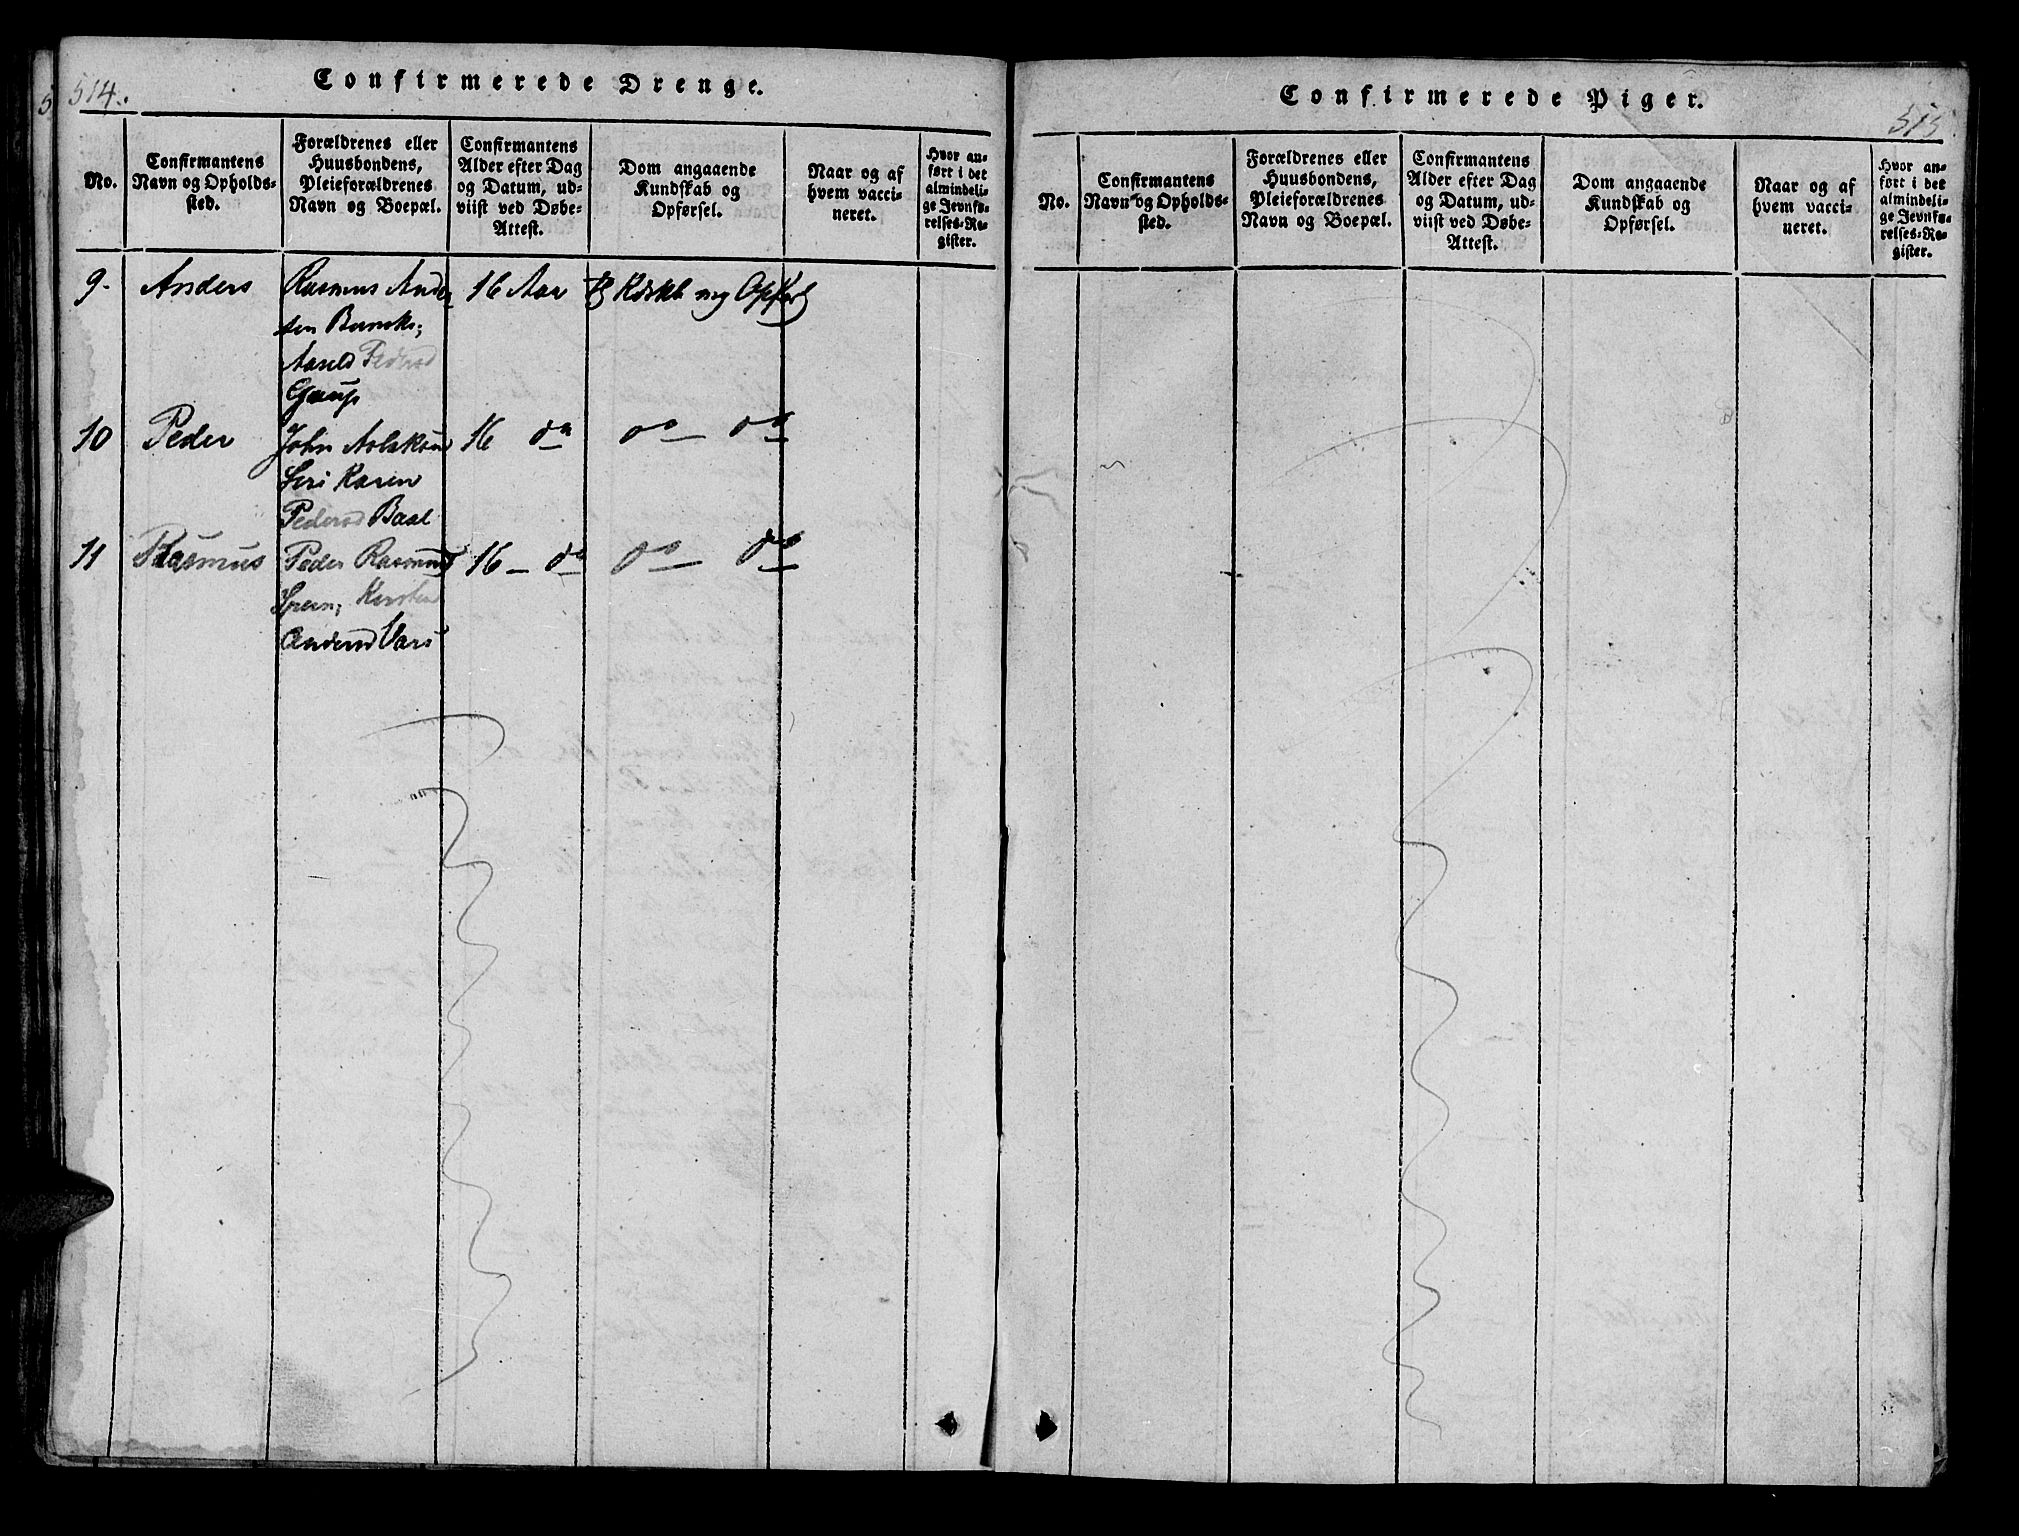 514.
Confirmerede Drenge.
No.
Confirmantens
Navn og Opholds-
sted.
Forældrenes eller
Huusbondens,
Pleieforældrenes
Navn og Boepæl.
Confirmantens
Alder efter Dag
og Datum, ud-
viist ved Døbe-
Attest.
Dom angaaende
Kundskab og
Opførsel.
Naar og af
hvem vacci-
neret.
Hvor an-
ført i det
almindeli-
ge Jevnfø-
relses-Re-
gister.
9. Anders Rasmus Ander 16 Aar
sen
Gaup
10 Peder John 16 do do do
Karen
Pedersd
11 Rasmus Peder Rasmus 16 do do do
Kirsten
Andersd Vars
Confirmerede Piger.
515
No.
Confirmantens
Navn og Opholds-
sted.
Forældrenes eller
Huusbondens,
Pleieforældrenes
Navn og Boepæl.
Confirmantens
Alder efter Dag
og Datum, ud-
viist ved Døbe-
Attest.
Dom angaaende
Kundskab og
Opførsel.
Naar og af
hvem vacci-
neret.
Hvor an-
ført i det
almindeli-
ge Jevnfø-
relses-Re-
gister.